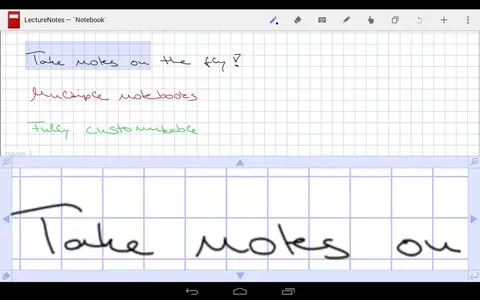 LectureNotes — `Notebook´
Take notes on the fly!
Multiple notebooks
Fully customizable
page 1
Take notes on